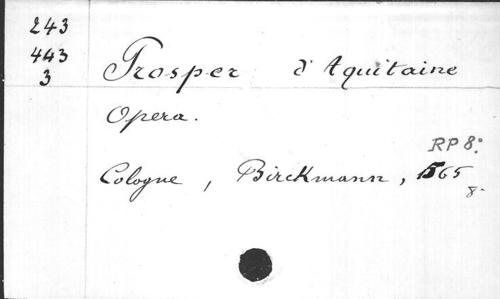 243
443
3
Prosper d'Aquitaine
Opera.
RP 8:
Cologne, Birckmann, 1565
8-